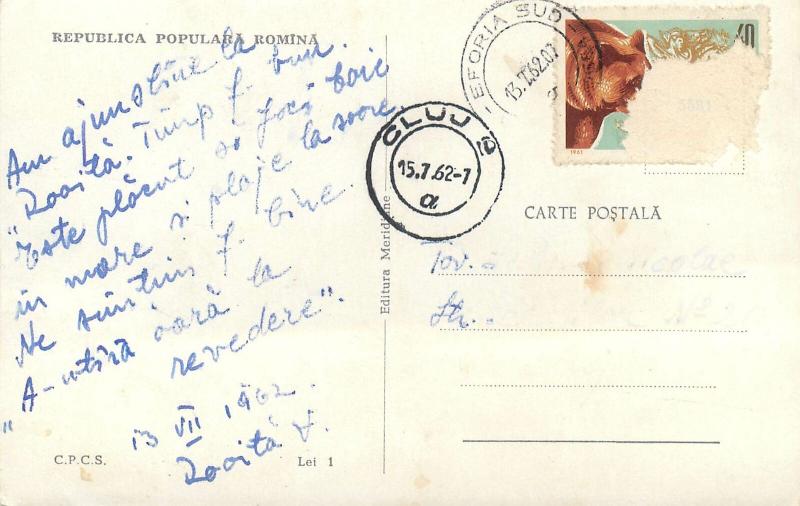 REPUBLICA POPULARĂ ROMÎNĂ
Am ajuns bine la
"Rozită. Timp f. bun.
Este plăcut să faci baie
în mare și plaje la soare.
Ne simțim f. bine.
la
revedere".
13 VII 1962.
C.P.C.S.
Lei 1
Editura Meridiane
EFORIA SUD
13.7.62.07
CLUJ
15.7.62-7
a
40
1961
5881
CARTE POȘTALĂ
Tov.
Str. No